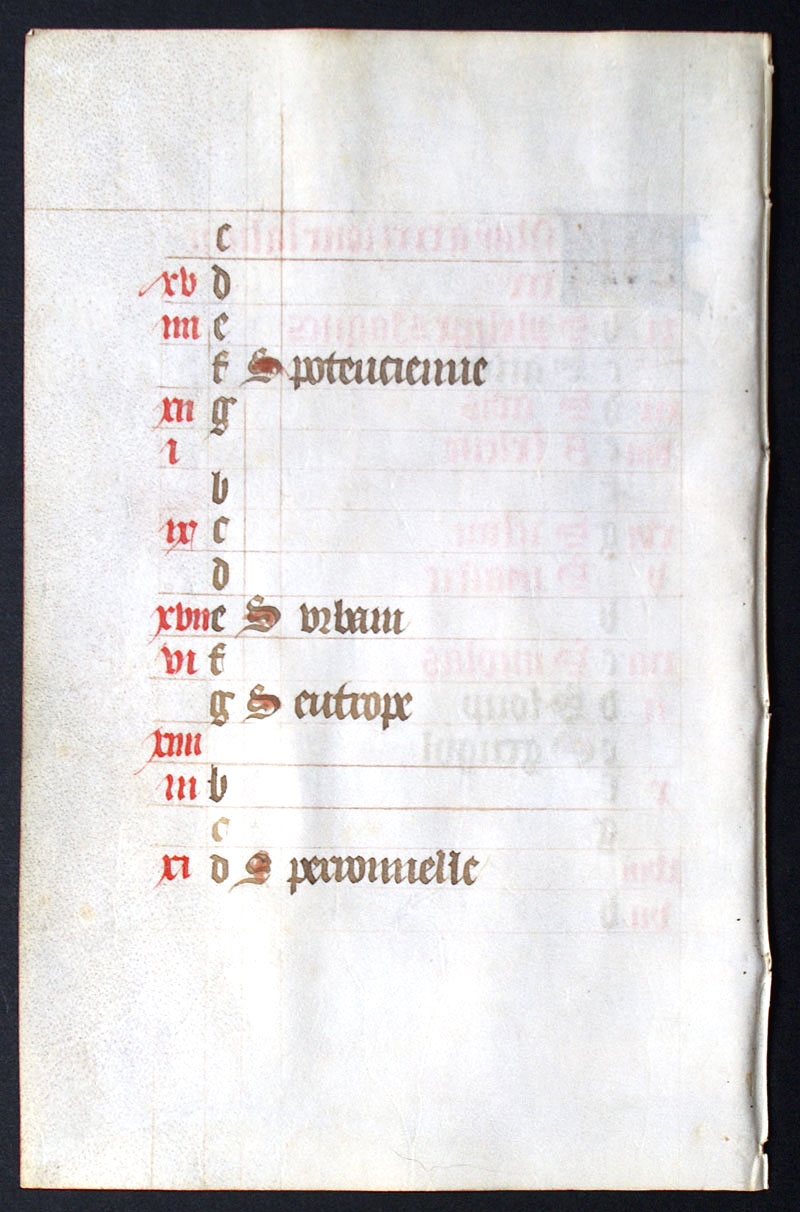 c
xv d
iiii e
f S potencienne
xii g
i
b
ix c
d
xvii e S vrbain
vi f
g S eutrope
xiiii
iii b
c
xi d S perronnelle